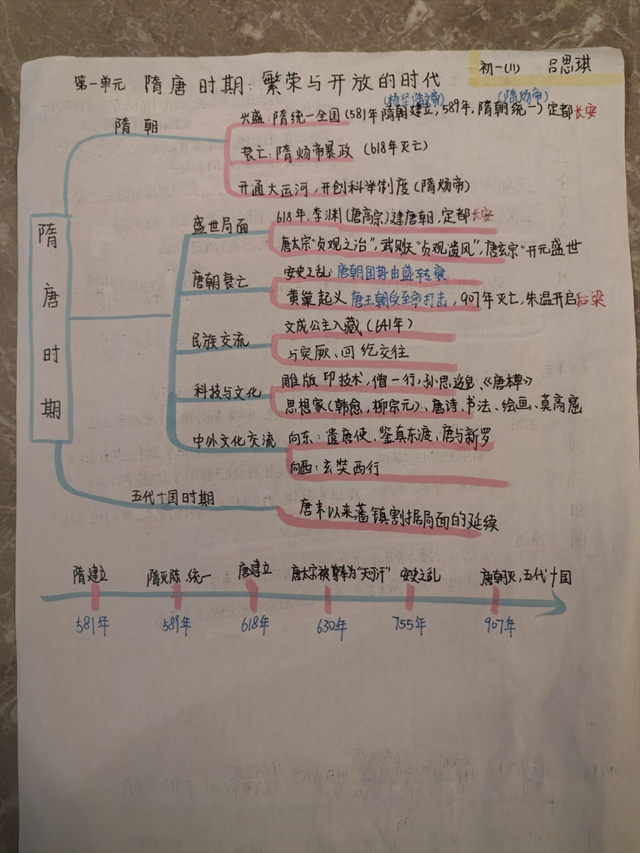 初一(11) 吕思琪
第一单元 隋唐时期:繁荣与开放的时代
(隋炀帝)
隋朝
兴盛:隋统一全国(581年隋朝建立,589年,隋朝统一)定都长安
衰亡:隋炀帝暴政(618年灭亡)
开通大运河,开创科举制度(隋炀帝)
隋唐时期
盛世局面
618年,李渊(唐高宗)建唐朝,定都长安
唐太宗"贞观之治",武则天"贞观遗风",唐玄宗"开元盛世
唐朝衰亡
安史之乱:唐朝国势由盛转衰
黄巢起义 唐王朝受至打击,907年灭亡,朱温开启后梁
民族交流
文成公主入藏(641年)
与突厥、回纥交往
科技与文化
雕版印技术,僧一行,孙思邈《唐本草》
思想家(韩愈,柳宗元)、唐诗、书法、绘画、莫高窟
中外文化交流
向东:遣唐使、鉴真东渡、唐与新罗
向西:玄奘西行
五代十国时期
唐末以来藩镇割据局面的延续
隋建立 隋灭陈 统一 唐建立 唐太宗被尊为"天可汗" 安史之乱 唐朝灭,五代十国
581年 589年 618年 630年 755年 907年